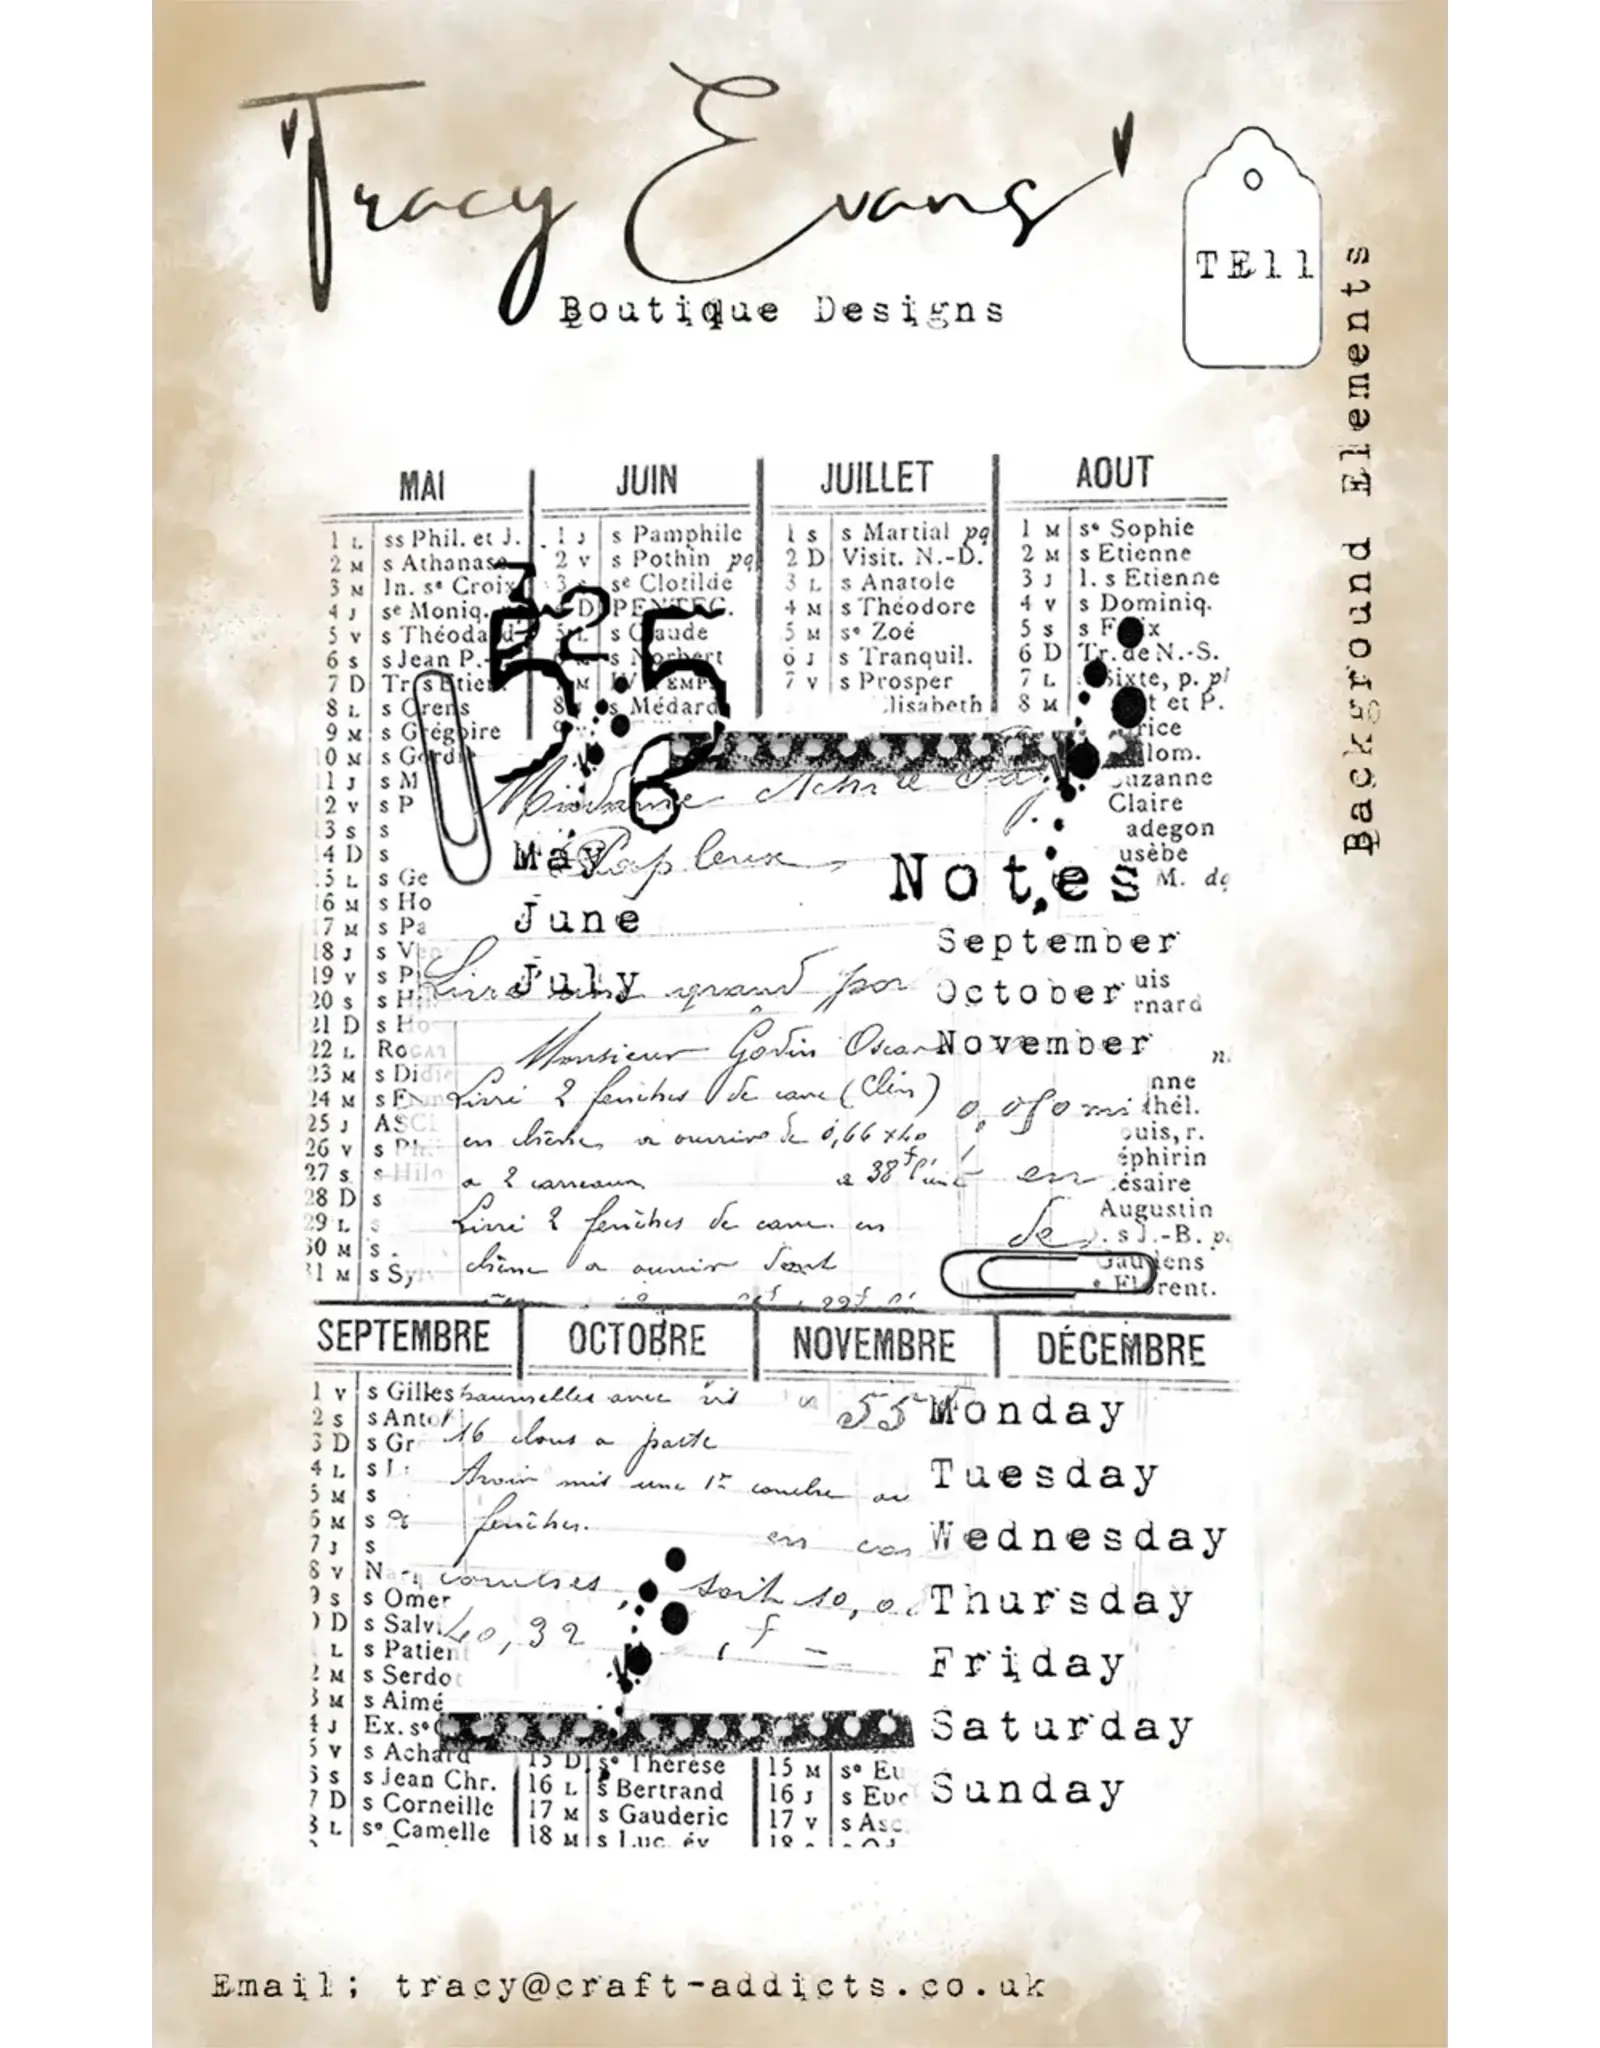 Tracy Evans
Boutique Designs
TE11
Background Elements
MAI JUIN JUILLET AOUT
1 L ss Phil. et J. 1 J s Pamphile 1 s s Martial pq 1 M sᵉ Sophie
2 M s Athanase 2 v s Pothin pq 2 D Visit. N.-D. 2 M s Etienne
3 M In. sᵉ Croix 3 s sᵉ Clotilde 3 L s Anatole 3 J I. s Etienne
4 J sᵉ Moniq. D PENTEC. 4 M s Théodore 4 v s Dominiq.
5 v s Théodard s Claude 5 M sᵉ Zoé 5 s s Félix
6 s s Jean P.- s Norbert 6 J s Tranquil. 6 D Tr. de N.-S.
7 D Tr. s Etien M IV TEMP. 7 v s Prosper 7 L Sixte, p.
8 L s Orens 8 s Médard lisabeth 8 M t et P.
9 M s Grégoire rice
10 M s Gordi lom.
11 J s M Suzanne
12 v s P Claire
13 s s adegon
14 D s usèbe
15 L s Ge M.
16 M s Ho
17 M s Pa
18 J s V
19 v s P uis
20 s s H rnard
21 D s Ho
22 L Rogat
23 M s Didi nne
24 M s F thél.
25 J ASC ouis, r.
26 v s Ph éphirin
27 s s Hilo ésaire
28 D s Augustin
29 L s s J.-B.
30 M s Gaudens
31 M s Sy Florent.
525
6
Madame
May
June
July
Notes
September
October
November
Livré une grand por
Monsieur Godin Oscar
Livré 2 fenêtres de cave (Clin) 0,080 m
en chêne a ouvrir de 0,66 x 40
a 2 carreaux a 38f en
Livré 2 fenêtres de cave en de
chêne a ouvrir
SEPTEMBRE OCTOBRE NOVEMBRE DÉCEMBRE
1 v s Gilles paumelles avec vis 55
2 s s Anto
3 D s Gr 16 clous a patte
4 L s
5 M s Avoir mis une 1re couche au
6 M s fenêtres. en
7 J s
8 v Na
9 s s Omer soit 10,0
D s Salvi 40,32 f =
L s Patient
2 M s Serdot
3 M s Aimé
4 J Ex. sᵉ C
5 v s Achard 15 D sᵉ Thérèse 15 M sᵉ Eu
6 s s Jean Chr. 16 L s Bertrand 16 J s Euc
7 D s Corneille 17 M s Gauderic 17 v s Asc
8 L sᵉ Camelle 18 M s Luc, év. 18 s s Od
Monday
Tuesday
Wednesday
Thursday
Friday
Saturday
Sunday
Email; tracy@craft-addicts.co.uk